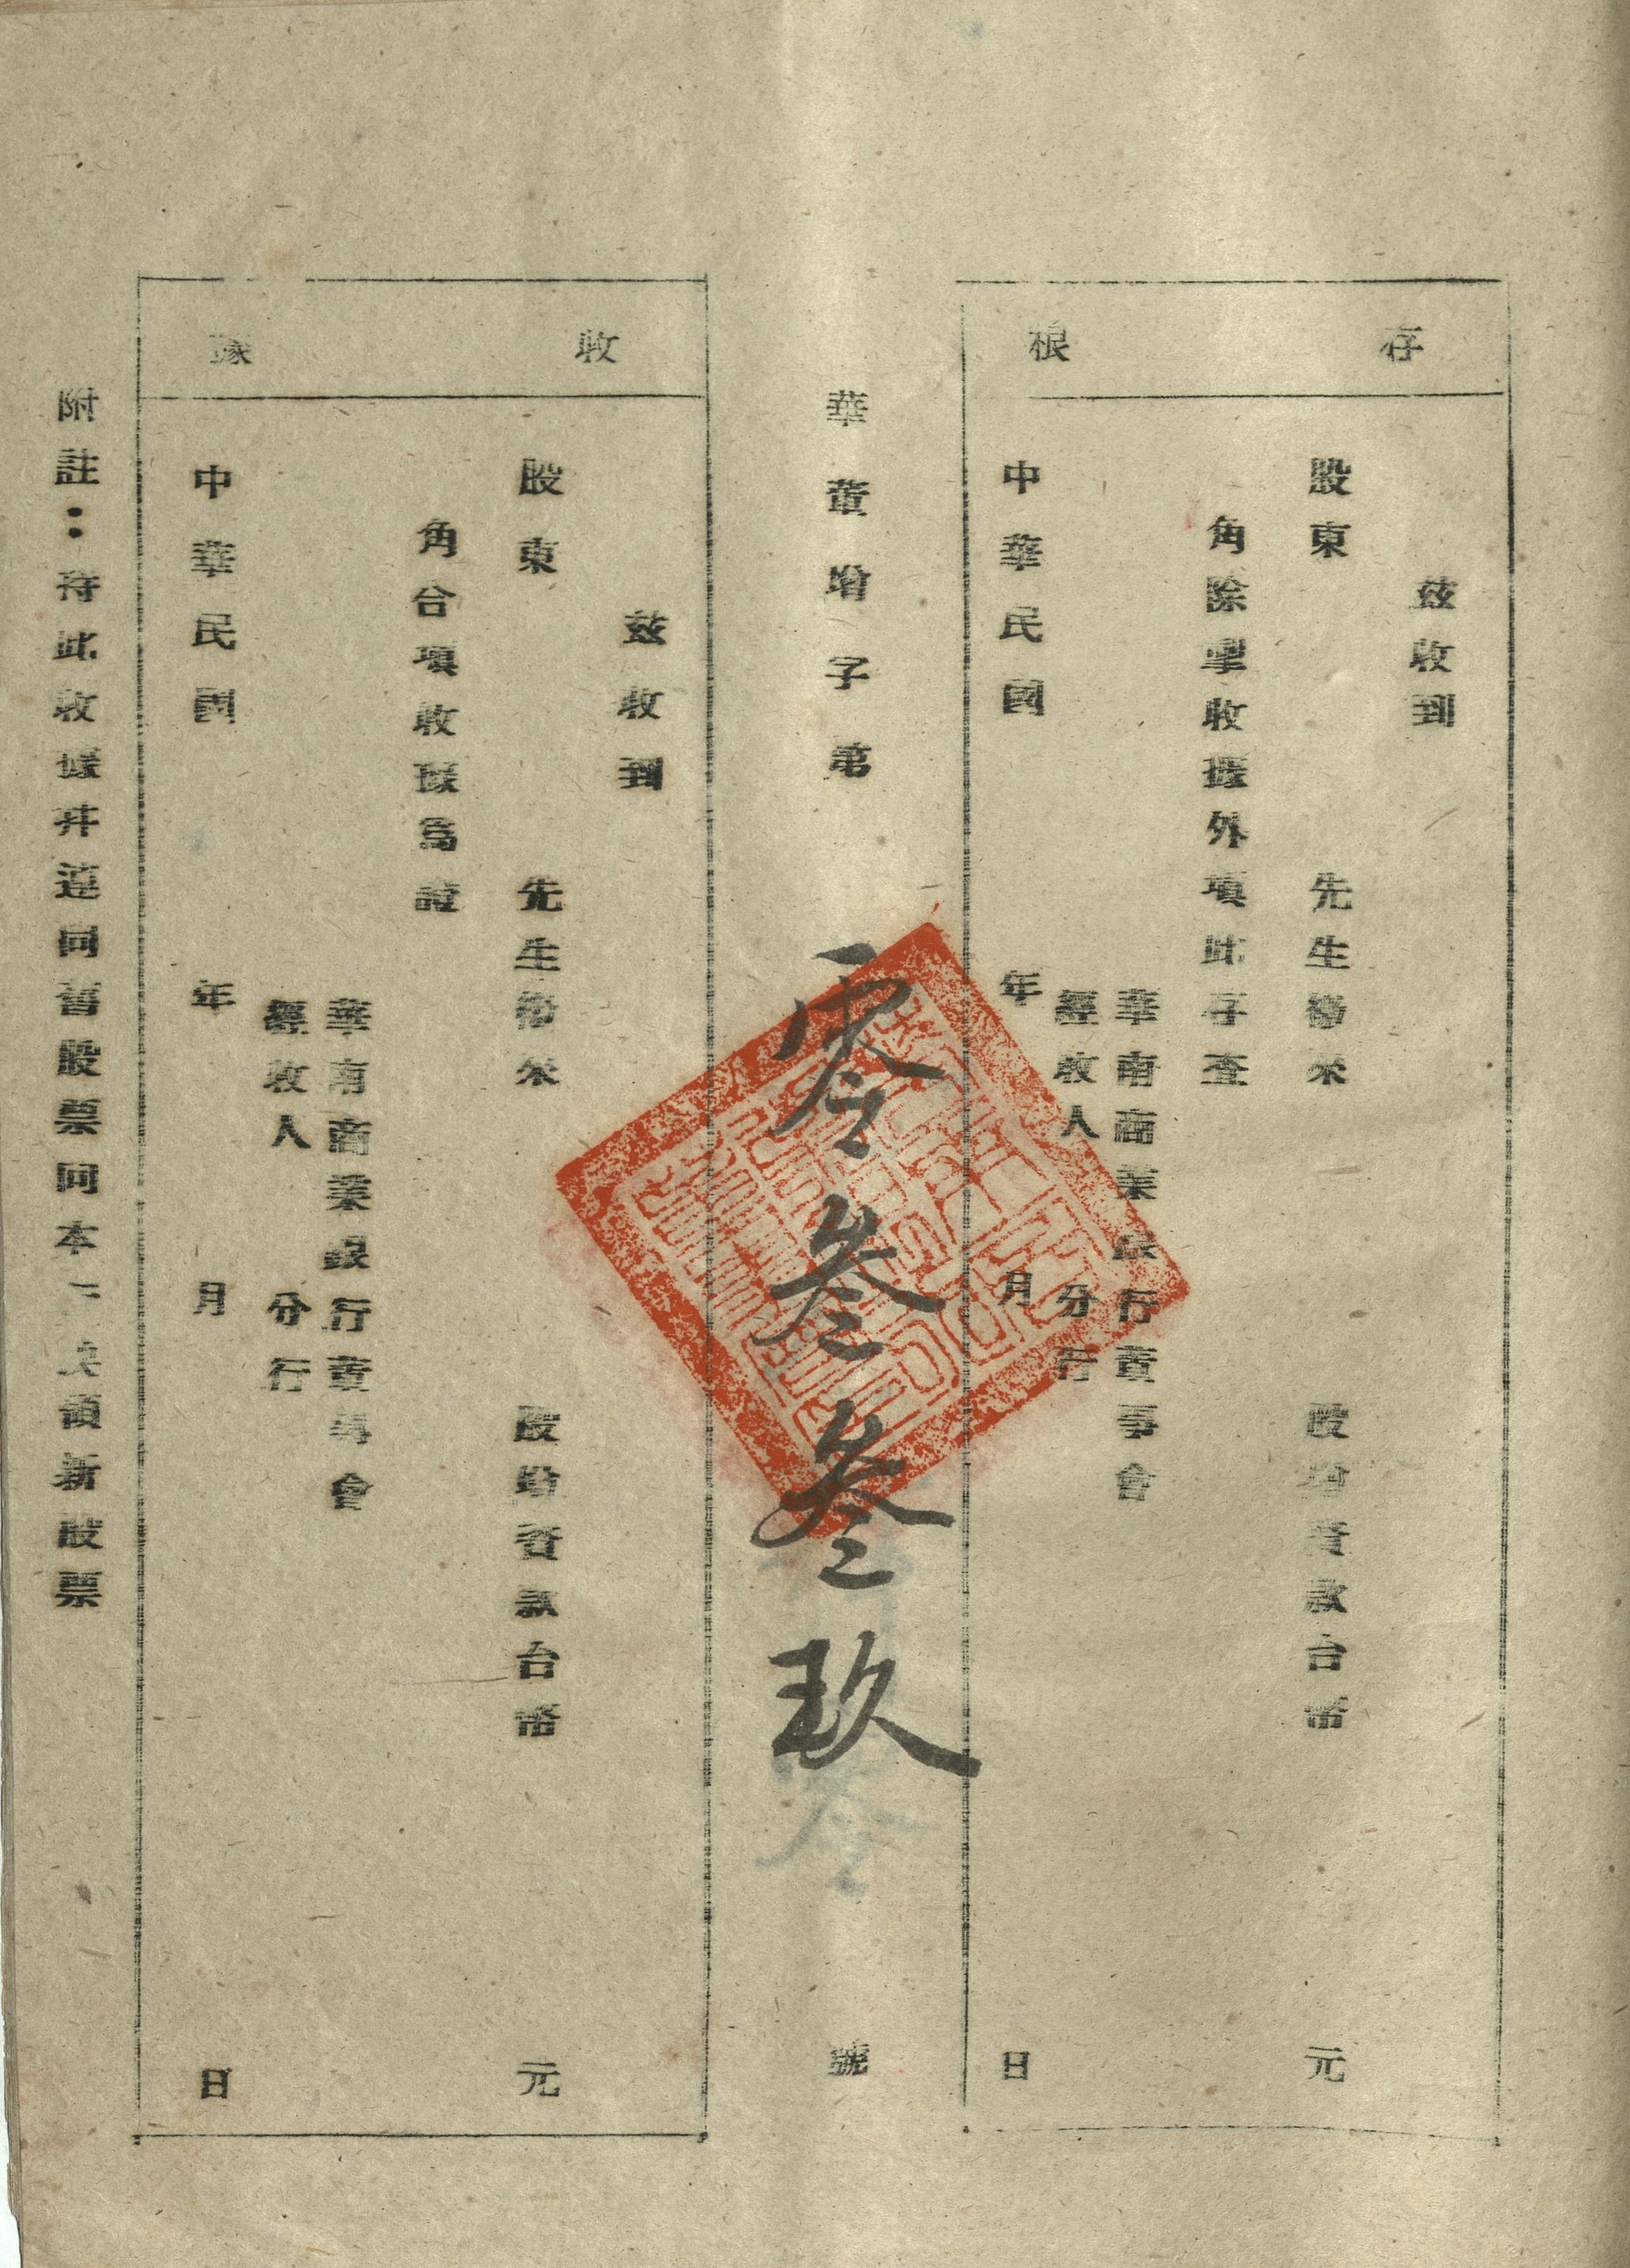 存根
茲收到
股東 先生繳來 股增資款台幣 元
角除掣收據外項此存查
華南商業銀行董事會
經收人 分行
中華民國 年 月 日
華董增字第 零叁叁玖 號
收據
茲收到
股東 先生繳來 股增資款台幣 元
角合項收據為證
華南商業銀行董事會
經收人 分行
中華民國 年 月 日
附註：持此收據并連同舊股票向本 換領新股票